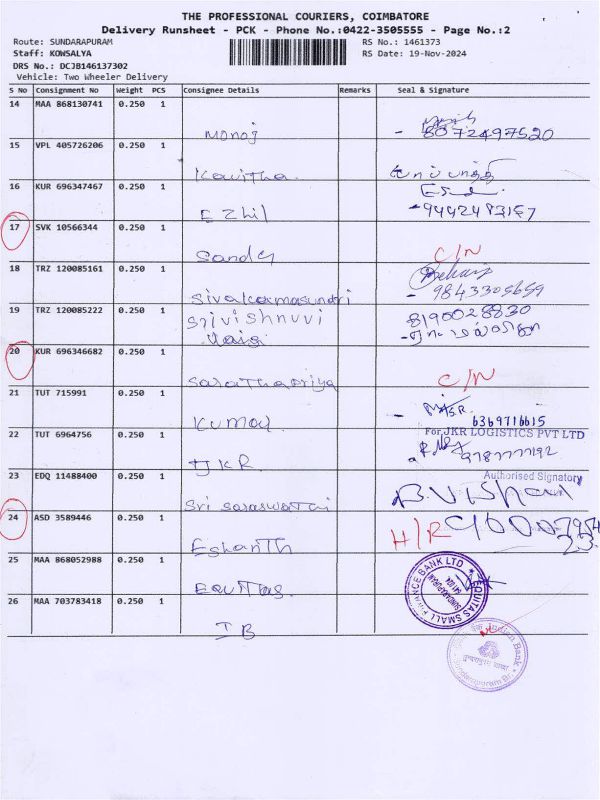 THE PROFESSIONAL COURIERS, COIMBATORE
Delivery Runsheet - PCK - Phone No.:0422-3505555 - Page No.:2
Route: SUNDARAPURAM RS No.: 1461373
Staff: KOWSALYA RS Date: 19-Nov-2024
DRS No.: DCJB146137302
Vehicle: Two Wheeler Delivery
S No Consignment No Weight PCS Consignee Details Remarks Seal & Signature
14 MAA 868130741 0.250 1
Manoj - 8072497520
15 VPL 405726206 0.250 1
Kavitha
16 KUR 696347467 0.250 1
Ezhil - 9442483157
17 SVK 10566344 0.250 1
Sandy C/N
18 TRZ 120085161 0.250 1
Sivakamasundri - 9843305659
19 TRZ 120085222 0.250 1
Srivishnuvi 8190028830
20 KUR 696346682 0.250 1
C/N
21 TUT 715991 0.250 1
Kumar 6369716615
22 TUT 6964756 0.250 1
For JKR LOGISTICS PVT LTD
JKR
Authorised Signatory
23 EDQ 11488400 0.250 1
Sri Saraswathi B. Vishal
24 ASD 3589446 0.250 1
Eshanth H/R
25 MAA 868052988 0.250 1
Equitas
EQUITAS SMALL FINANCE BANK LTD
SUNDARAPURAM
26 MAA 703783418 0.250 1
IB
Indian Bank
Sundarapuram Br.